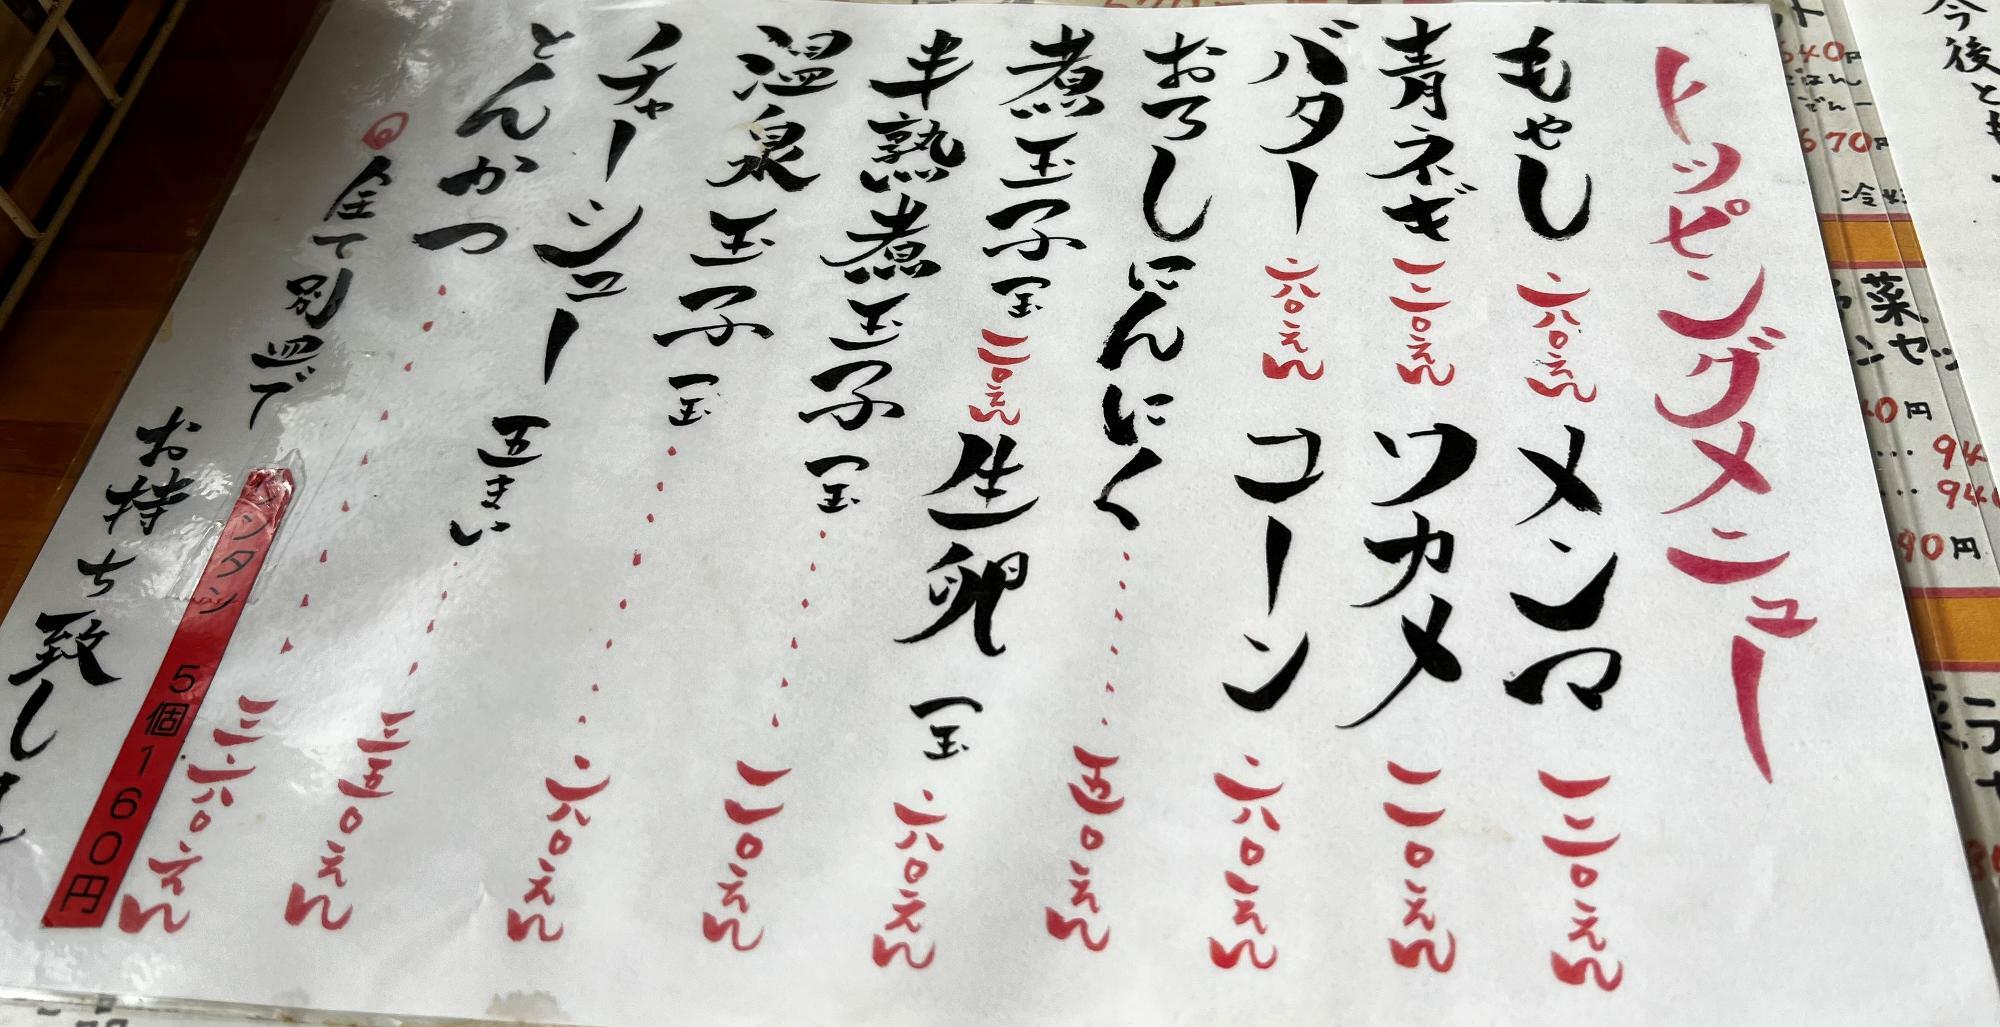 トッピングメニュー
もやし 六〇えん メンマ 一二〇えん
青ネギ 一二〇えん ワカメ 一一〇えん
バター 六〇えん コーン 六〇えん
おろしにんにく 五〇えん
煮玉子 一玉 一一〇えん 生卵 一玉 六〇えん
半熟煮玉子 一玉 一一〇えん
温泉玉子 一玉 六〇えん
チャーシュー 五まい 三五〇えん
とんかつ 三六〇えん
ワンタン 5個160円
◎全て別皿で
お持ち致し
今後とも
670円
菜セッ
90円